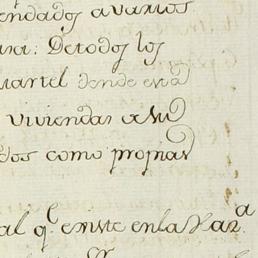 endados a varios
: De todos los
uartel donde está
viviendas a su
dos como propias
al q.^e existe en la